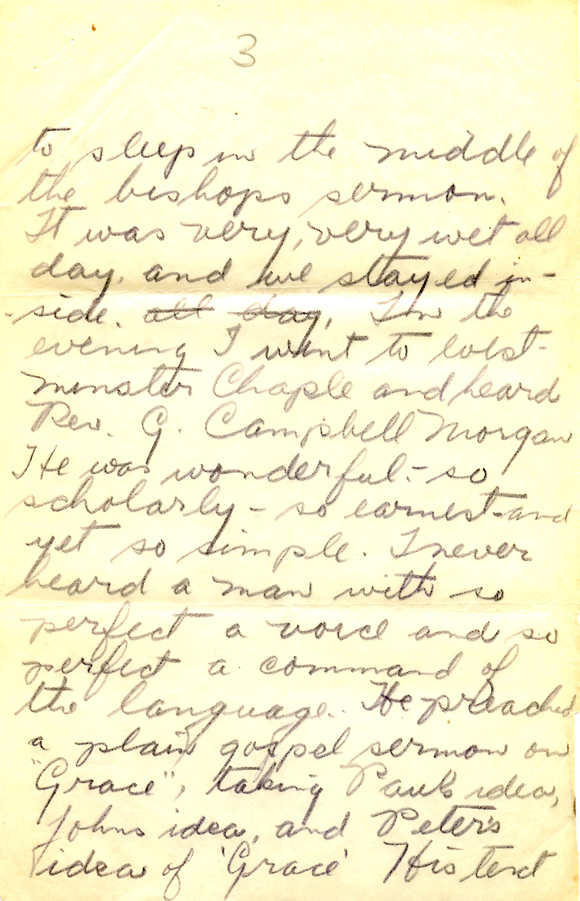 3
to sleep in the middle of
the bishops sermon.
It was very, very wet all
day, and we stayed in-
side. all day, In the
evening I went to West-
minster Chaple and heard
Rev. G. Campbell Morgan
He was wonderful - so
scholarly - so earnest - and
yet so simple. I never
heard a man with so
perfect a voice and so
perfect a command of
the language. He preached
a plain gospel sermon on
"Grace", taking Paul's idea,
Johns idea, and Peter's
idea of 'Grace' His text